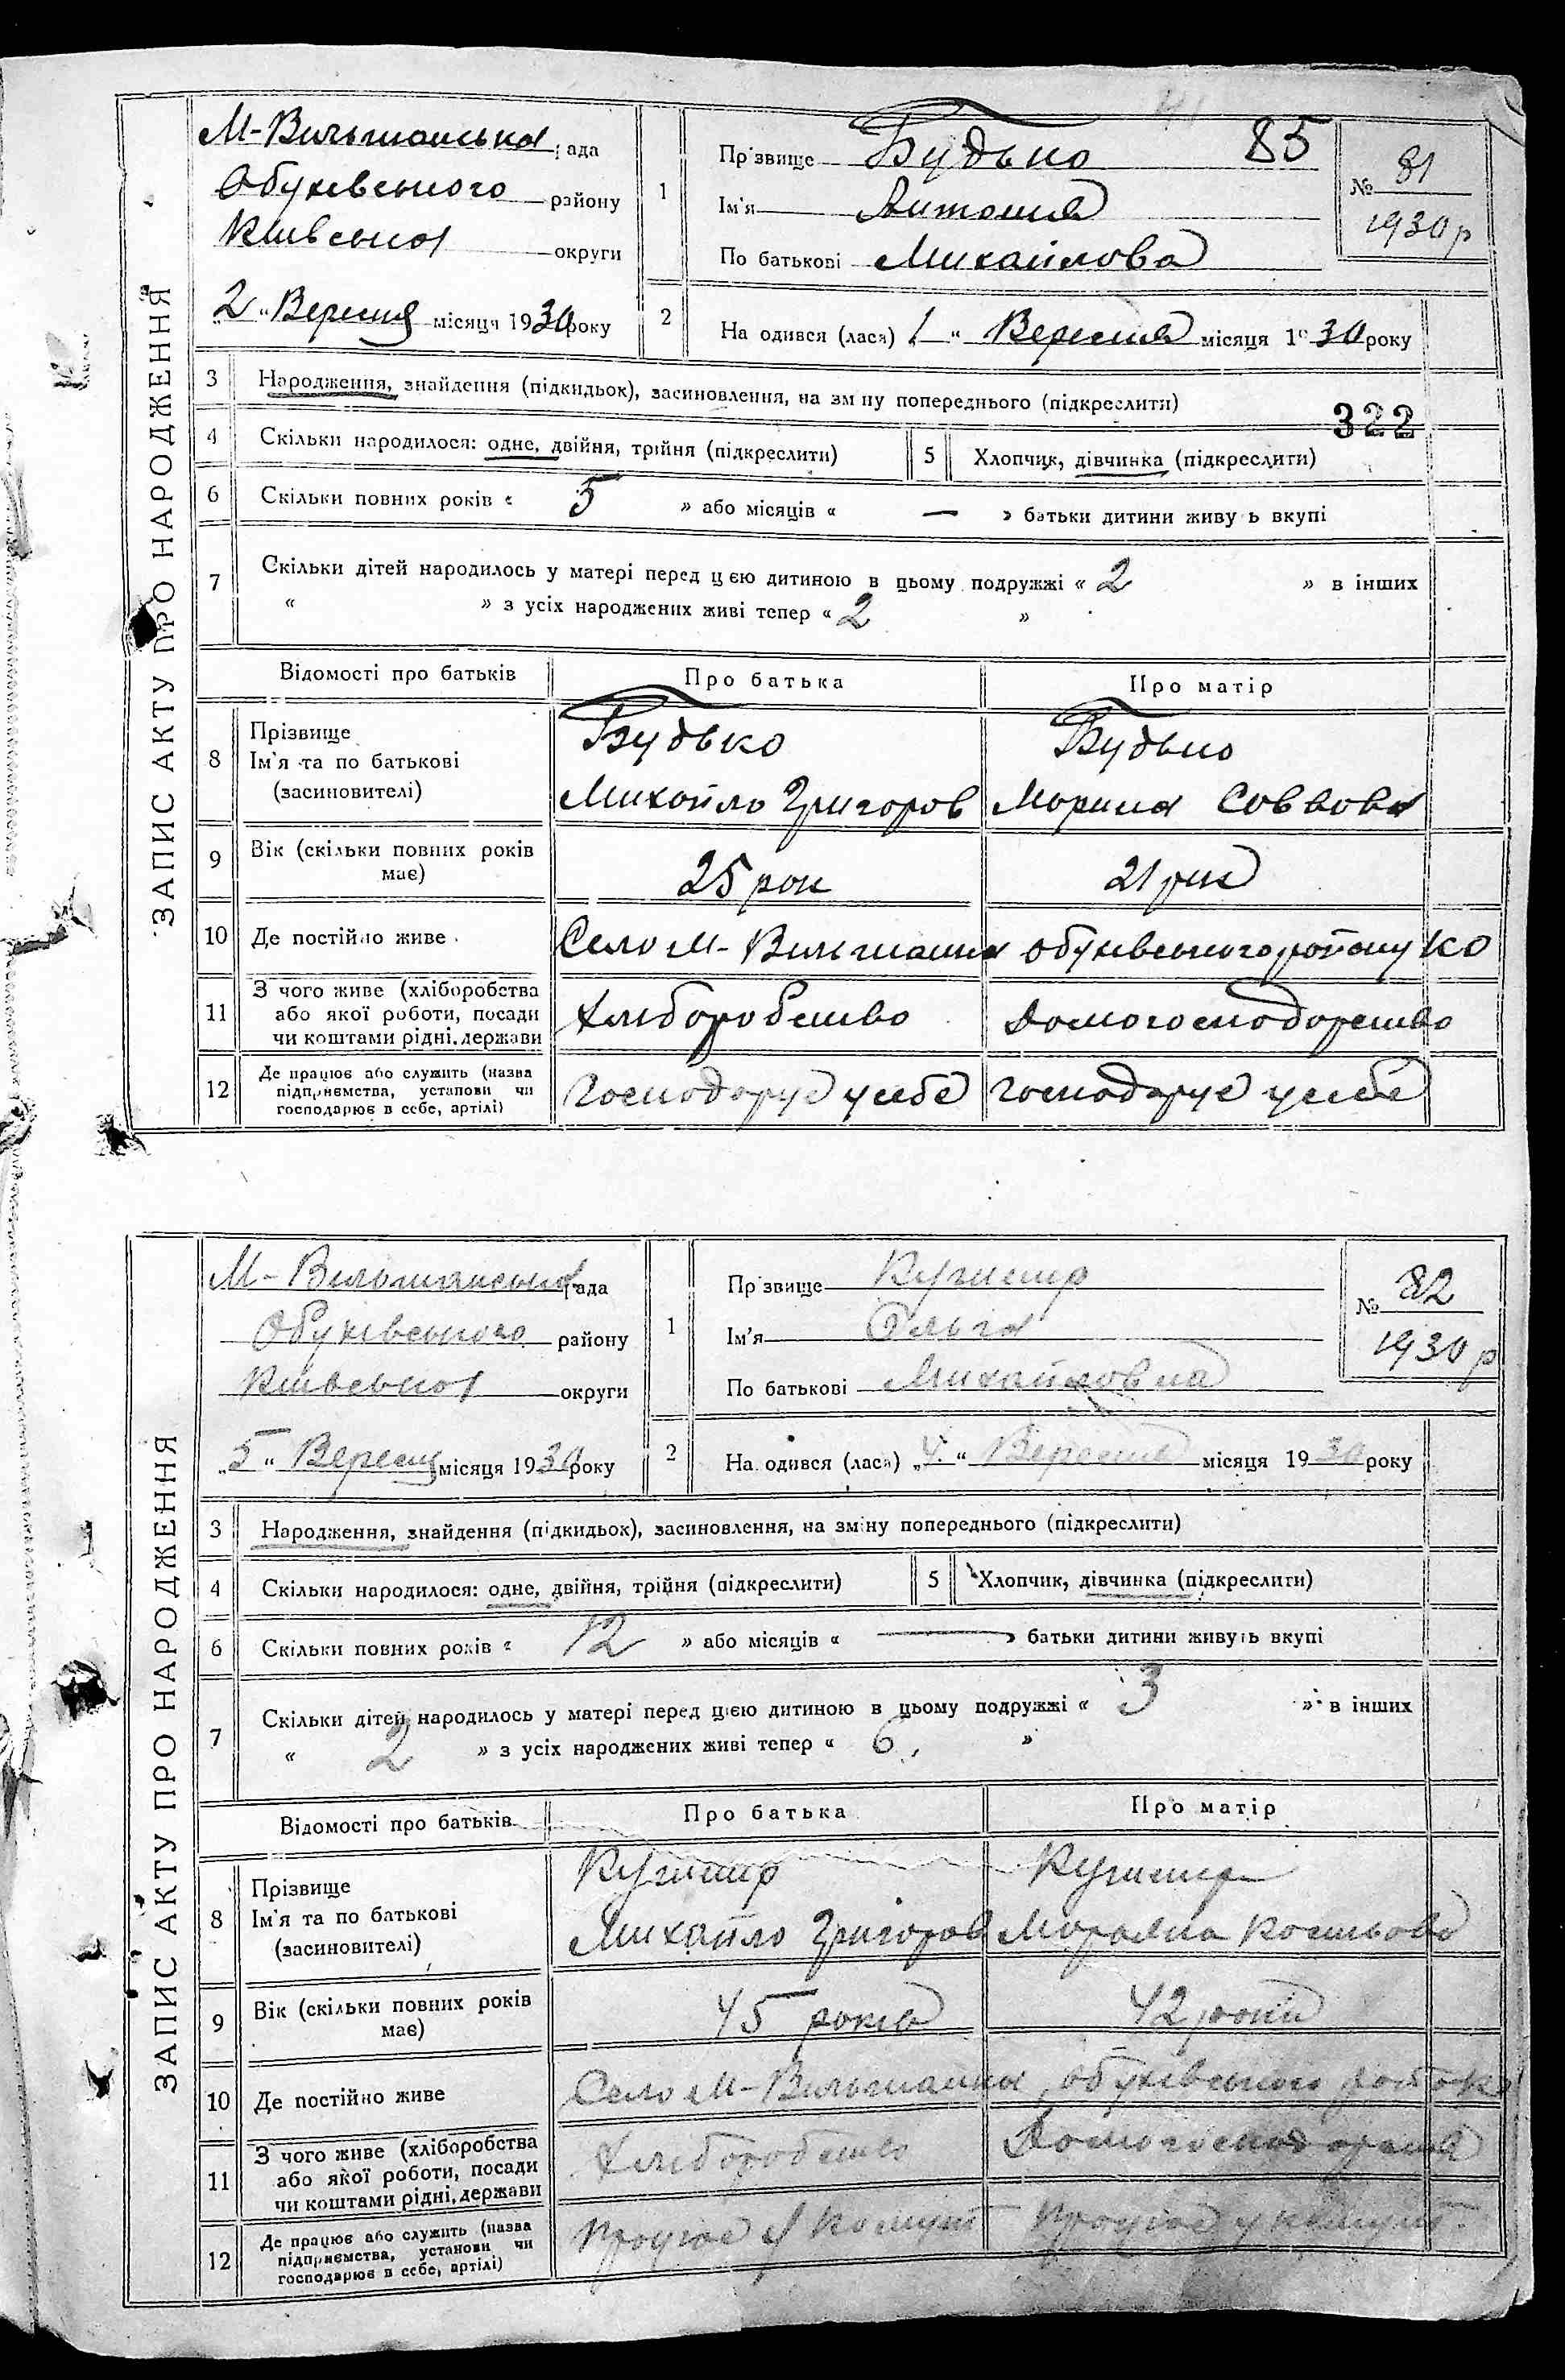 ЗАПИС АКТУ ПРО НАРОДЖЕННЯ
М-Вильшанська рада
Обухівського району
Київської округи
„2“ Вересня місяця 1930 року
1
Прізвище Будько 85
Ім'я Антонина
По батькові Михайлова
№ 81
1930 р
2
На одився (лася) „1“ Вересня місяця 1930 року
3 Народження, знайдення (підкидьок), засиновлення, на зміну попереднього (підкреслити)
322
4 Скільки народилося: одне, двійня, трійня (підкреслити) 5 Хлопчик, дівчинка (підкреслити)
6 Скільки повних років « 5 » або місяців « — » батьки дитини живуть вкупі
7 Скільки дітей народилось у матері перед цією дитиною в цьому подружжі « 2 » в інших
« » з усіх народжених живі тепер « 2 »
Відомості про батьків Про батька Про матір
8 Прізвище Будько Будько
Ім'я та по батькові
(засиновителі) Михайло Григоров Марина Соввова
9 Вік (скільки повних років має) 25 рок 21 рік
10 Де постійно живе Село М-Вильшанка Обухівського району КО
11 З чого живе (хліборобства
або якої роботи, посади
чи коштами рідні, держави Хліборобство Домогосподарство
12 Де працює або служить (назва
підприємства, установи чи
господарює в себе, артілі) Господарує у себе Господарує у себе
ЗАПИС АКТУ ПРО НАРОДЖЕННЯ
М-Вильшанська рада
Обухівського району
Київської округи
„5“ Вересня місяця 1930 року
1
Прізвище Кушнир
Ім'я Ольга
По батькові Михайловна
№ 82
1930 р
2
На одився (лася) „4“ Вересня місяця 1930 року
3 Народження, знайдення (підкидьок), засиновлення, на зміну попереднього (підкреслити)
4 Скільки народилося: одне, двійня, трійня (підкреслити) 5 Хлопчик, дівчинка (підкреслити)
6 Скільки повних років « 12 » або місяців « — » батьки дитини живуть вкупі
7 Скільки дітей народилось у матері перед цією дитиною в цьому подружжі « 3 » в інших
« 2 » з усіх народжених живі тепер « 6 »
Відомості про батьків Про батька Про матір
8 Прізвище Кушнир Кушнир
Ім'я та по батькові
(засиновителі) Михайло Григоров
9 Вік (скільки повних років має) 45 років 42 роки
10 Де постійно живе Село М-Вильшанка, Обухівського
11 З чого живе (хліборобства
або якої роботи, посади
чи коштами рідні, держави Хліборобство
12 Де працює або служить (назва
підприємства, установи чи
господарює в себе, артілі) Працює у Комуні Працює у комуні